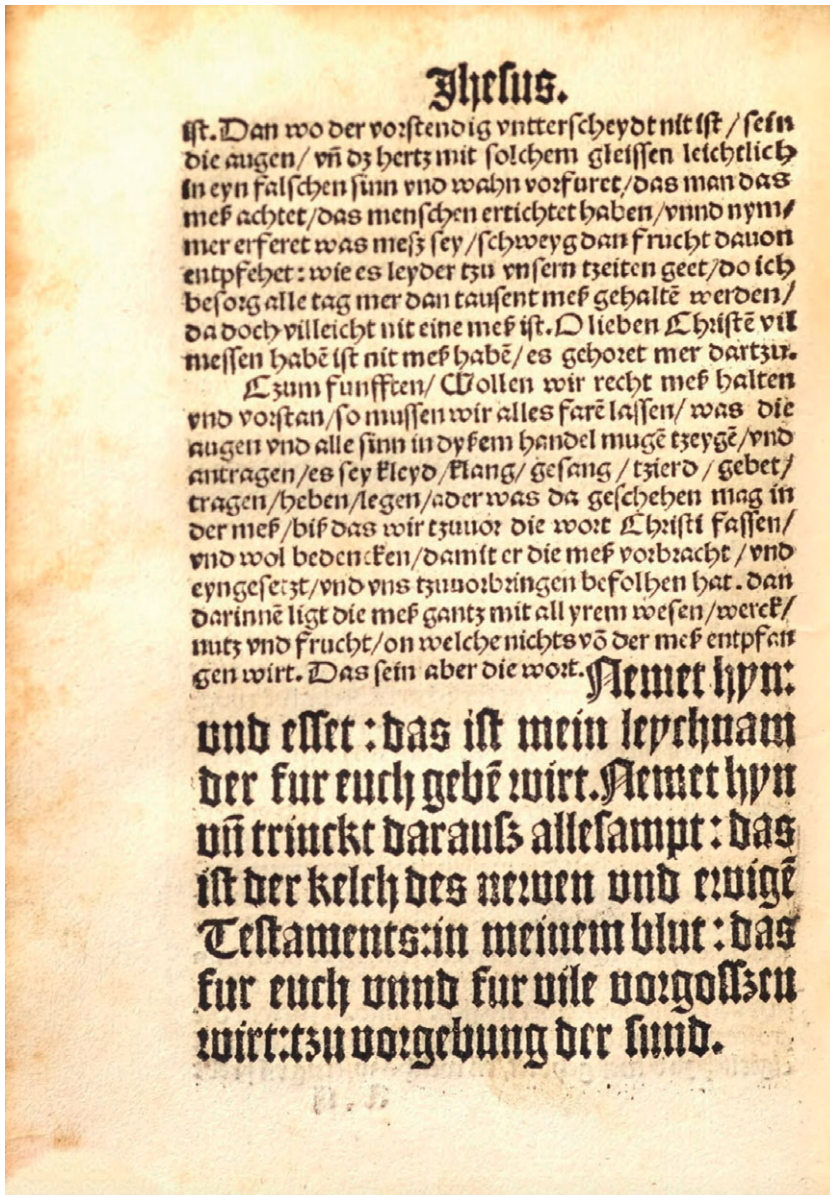 Jhesus.
ist. Dan wo der vorstendig vntterscheydt nit ist / sein
die augen / vn̄ dz hertz mit solchem gleissen leichtlich
in eyn falschen sinn vnd wahn vorfuret / das man das
meß achtet / das menschen ertichtet haben / vnnd nym⸗
mer erferet was mesz sey / schweyg dan frucht dauon
entpfehet : wie es leyder tzu vnsern tzeiten geet / do ich
besorg alle tag mer dan tausent meß gehaltē werden /
da doch villeicht nit eine meß ist. O lieben Christē vil
messen habē ist nit meß habē / es gehoret mer dartzu.
Czum funfften / Wollen wir recht meß halten
vnd vorstan / so mussen wir alles farē lassen / was die
augen vnd alle sinn in dyßem handel mugē tzeygē / vnd
antragen / es sey kleyd / klang / gesang / tzierd / gebet /
tragen / heben / legen / ader was da geschehen mag in
der meß / biß das wir tzuuor die wort Christi fassen /
vnd wol bedencken / damit er die meß vorbracht / vnd
eyngesetzt / vnd vns tzuuorbringen befolhen hat. dan
darinnē ligt die meß gantz mit all yrem wesen / werck /
nutz vnd frucht / on welche nichts vō der meß entpfan
gen wirt. Das sein aber die wort. Nemet hyn:
und esset : das ist mein leychnam
der fur euch gebē wirt. Nemet hyn
un̄ trinckt darausz allesampt : das
ist der kelch des newen und ewigē
Testaments: in meinem blut : das
fur euch unnd fur vile vorgosszen
wirt: tzu vorgebung der sund.